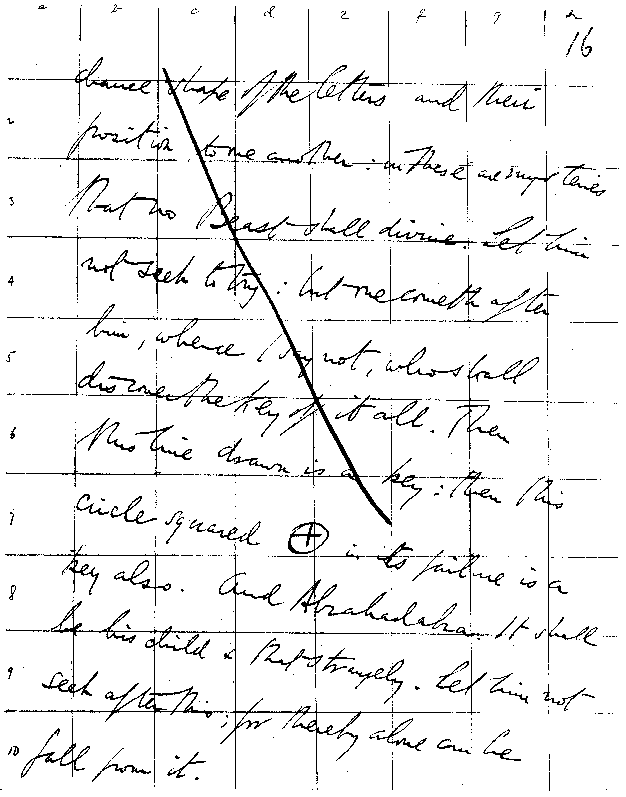 a b c d e f g h
16
chance shape of the letters and their
2
position to one another: in these are mysteries
3
that no Beast shall divine. Let him
4
not seek to try: but one cometh after
him, whence I say not, who shall
5
discover the key of it all. Then
6
this line drawn is a key: then this
7
circle squared ⊕ in its failure is a
key also. And Abrahadabra. It shall
8
be his child & that strangely. Let him not
9
seek after this; for thereby alone can he
10
fall from it.